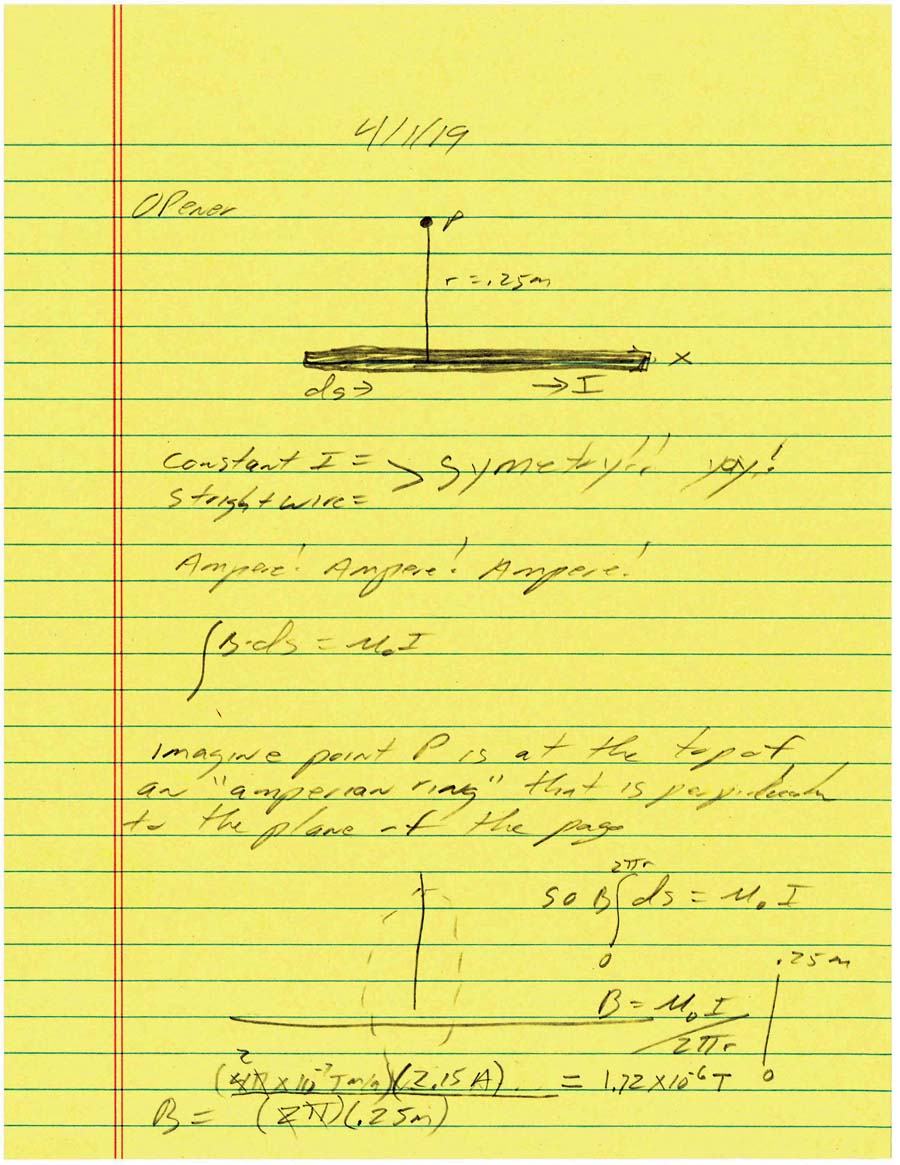 4/1/19
OPener
P
r = .25m
X
ds →
→ I
constant I =
stright wire =
> Symetry!! yay!
Ampere! Ampere! Ampere!
∫B·ds = μ₀I
imagine point P is at the top of
an "amperian ring" that is
to the plane of the page
so B∫₀^2πr ds = μ₀ I
.25m
B = μ₀ I / 2πr
0
B = (2 4π × 10⁻⁷ Tm/A)(2.15 A) / (2π)(.25m) = 1.72 × 10⁻⁶ T